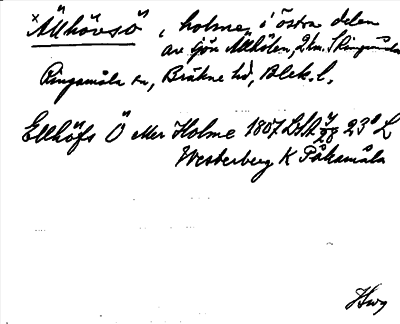 ×Ällhövsö, holme, i östra delen
av sjön Ällhölen, 2 km.
Ringamåla sn, Bräkne hd, Blek. l.
Ellhöfs Ö eller Holme 1807 LSA 23ᵒ L
Westerberg K Påkamåla
Hwg